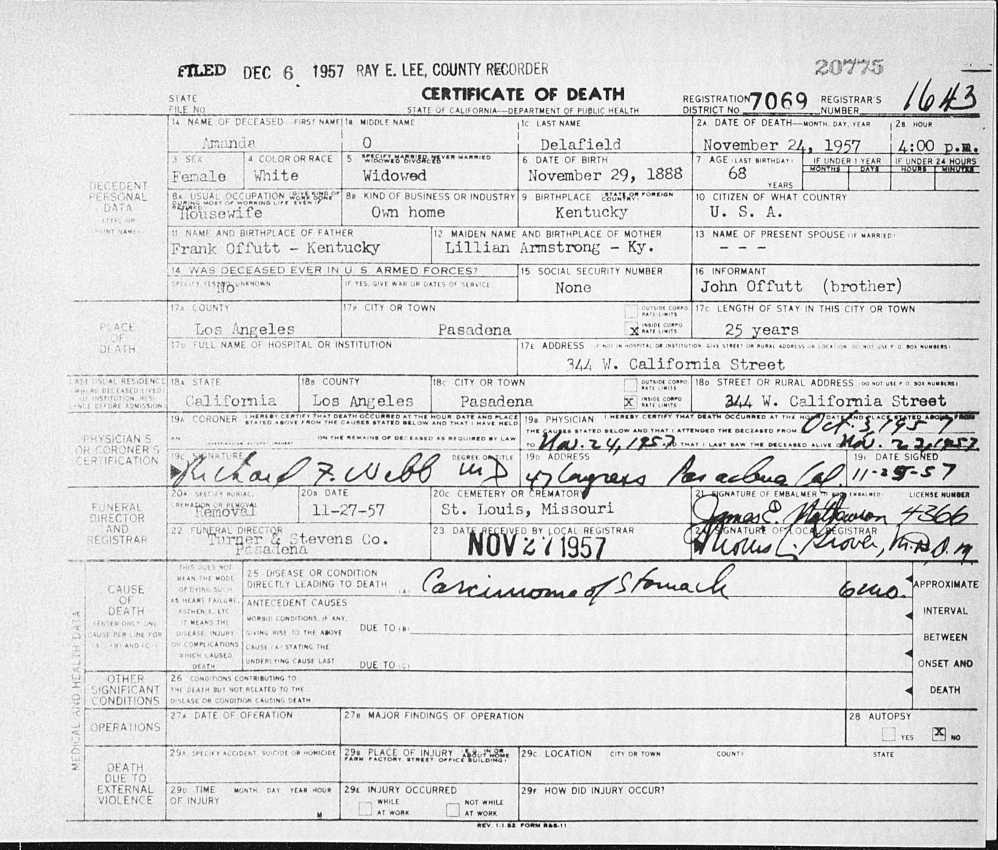 FILED DEC 6 1957 RAY E. LEE, COUNTY RECORDER 20775
CERTIFICATE OF DEATH
STATE OF CALIFORNIA—DEPARTMENT OF PUBLIC HEALTH
STATE FILE NO.
REGISTRATION DISTRICT NO. 7069 REGISTRAR'S NUMBER 1643
DECEDENT PERSONAL DATA (TYPE OR PRINT NAME)
1A NAME OF DECEASED—FIRST NAME Amanda
1B MIDDLE NAME O
1C LAST NAME Delafield
2A DATE OF DEATH—MONTH, DAY, YEAR November 24, 1957
2B HOUR 4:00 p.m.
3 SEX Female
4 COLOR OR RACE White
5 SPECIFY MARRIED, NEVER MARRIED WIDOWED DIVORCED Widowed
6 DATE OF BIRTH November 29, 1888
7 AGE (LAST BIRTHDAY) 68 YEARS
IF UNDER 1 YEAR MONTHS DAYS
IF UNDER 24 HOURS HOURS MINUTES
8A USUAL OCCUPATION GIVE KIND OF WORK DONE DURING MOST OF WORKING LIFE EVEN IF RETIRED Housewife
8B KIND OF BUSINESS OR INDUSTRY Own home
9 BIRTHPLACE (STATE OR FOREIGN COUNTRY) Kentucky
10 CITIZEN OF WHAT COUNTRY U. S. A.
11 NAME AND BIRTHPLACE OF FATHER Frank Offutt - Kentucky
12 MAIDEN NAME AND BIRTHPLACE OF MOTHER Lillian Armstrong - Ky.
13 NAME OF PRESENT SPOUSE (IF MARRIED) - - -
14 WAS DECEASED EVER IN U. S. ARMED FORCES?
SPECIFY YES, NO, UNKNOWN No
IF YES, GIVE WAR OR DATES OF SERVICE
15 SOCIAL SECURITY NUMBER None
16 INFORMANT John Offutt (brother)
PLACE OF DEATH
17A COUNTY Los Angeles
17B CITY OR TOWN Pasadena
OUTSIDE CORPORATE LIMITS
X INSIDE CORPORATE LIMITS
17C LENGTH OF STAY IN THIS CITY OR TOWN 25 years
17D FULL NAME OF HOSPITAL OR INSTITUTION
17E ADDRESS (IF NOT IN HOSPITAL OR INSTITUTION, GIVE STREET OR RURAL ADDRESS OR LOCATION. DO NOT USE P.O. BOX NUMBERS) 344 W. California Street
LAST USUAL RESIDENCE (WHERE DECEASED LIVED) IF INSTITUTION, RESIDENCE BEFORE ADMISSION
18A STATE California
18B COUNTY Los Angeles
18C CITY OR TOWN Pasadena
OUTSIDE CORPORATE LIMITS
X INSIDE CORPORATE LIMITS
18D STREET OR RURAL ADDRESS (DO NOT USE P.O. BOX NUMBERS) 344 W. California Street
PHYSICIAN'S OR CORONER'S CERTIFICATION
19A CORONER I HEREBY CERTIFY THAT DEATH OCCURRED AT THE HOUR DATE AND PLACE STATED ABOVE FROM THE CAUSES STATED BELOW AND THAT I HAVE HELD AN
ON THE REMAINS OF DECEASED AS REQUIRED BY LAW
19B PHYSICIAN I HEREBY CERTIFY THAT DEATH OCCURRED AT THE HOUR DATE AND PLACE STATED ABOVE FROM THE CAUSES STATED BELOW AND THAT I ATTENDED THE DECEASED FROM Oct. 3, 1957
TO Nov. 24, 1957 AND THAT I LAST SAW THE DECEASED ALIVE ON Nov. 23, 1957
19C SIGNATURE DEGREE OR TITLE Richard F. Webb M D
19D ADDRESS 47 Congress Pasadena Cal.
19E DATE SIGNED 11-25-57
FUNERAL DIRECTOR AND REGISTRAR
20A SPECIFY BURIAL, CREMATION OR REMOVAL Removal
20B DATE 11-27-57
20C CEMETERY OR CREMATORY St. Louis, Missouri
21 SIGNATURE OF EMBALMER (IF BODY EMBALMED) LICENSE NUMBER James E. 4366
22 FUNERAL DIRECTOR Turner & Stevens Co. Pasadena
23 DATE RECEIVED BY LOCAL REGISTRAR NOV 27 1957
24 SIGNATURE OF LOCAL REGISTRAR
MEDICAL AND HEALTH DATA
CAUSE OF DEATH
(ENTER ONLY ONE CAUSE PER LINE FOR (A), (B) AND (C))
THIS DOES NOT MEAN THE MODE OF DYING SUCH AS HEART FAILURE, ASTHENIA, ETC. IT MEANS THE DISEASE, INJURY OR COMPLICATIONS WHICH CAUSED DEATH
25 DISEASE OR CONDITION DIRECTLY LEADING TO DEATH (A) Carcinoma of Stomach 6 mo.
ANTECEDENT CAUSES
MORBID CONDITIONS, IF ANY, GIVING RISE TO THE ABOVE CAUSE (A) STATING THE UNDERLYING CAUSE LAST
DUE TO (B)
DUE TO (C)
APPROXIMATE INTERVAL BETWEEN ONSET AND DEATH
OTHER SIGNIFICANT CONDITIONS
26 CONDITIONS CONTRIBUTING TO THE DEATH BUT NOT RELATED TO THE DISEASE OR CONDITION CAUSING DEATH
OPERATIONS
27A DATE OF OPERATION
27B MAJOR FINDINGS OF OPERATION
28 AUTOPSY
YES X NO
DEATH DUE TO EXTERNAL VIOLENCE
29A SPECIFY ACCIDENT, SUICIDE OR HOMICIDE
29B PLACE OF INJURY (E.G. IN OR ABOUT HOME FARM FACTORY, STREET OFFICE BUILDING)
29C LOCATION CITY OR TOWN COUNTY STATE
29D TIME OF INJURY MONTH DAY YEAR HOUR M
29E INJURY OCCURRED
WHILE AT WORK
NOT WHILE AT WORK
29F HOW DID INJURY OCCUR?
REV. 1-1-52 FORM R&S-11